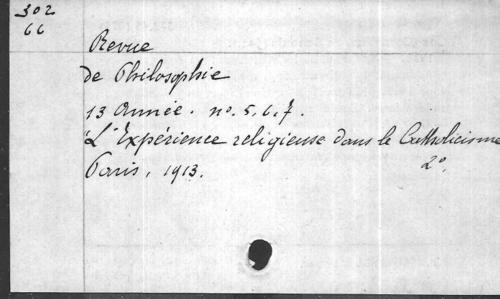 302
66
Revue
de Philosophie
13 Année. no. 5. 6. 7.
"L'Expérience religieuse dans le Catholicisme
Paris, 1913.
2o.